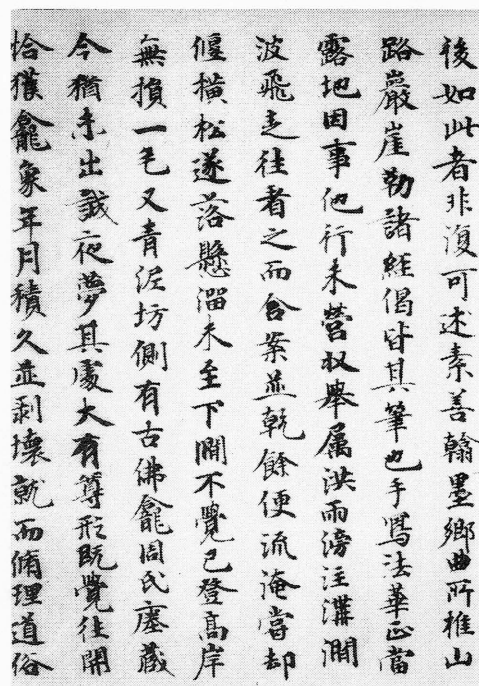 後如此者非復可述素善翰墨鄉曲所推山
路巖崖勒諸經偈皆其筆也手寫法華正當
露地因事他行未營收舉属洪雨滂注溝澗
波飛走往看之而合案並乾餘便流淹嘗却
偃橫松遂落懸溜未至下澗不覺已登高岸
無損一毛又青泥坊側有古佛龕周氏塵藏
今猶未出誠夜夢其處大有尊形既覺往開
恰獲龕象年月積久並剥壞就而脩理道俗